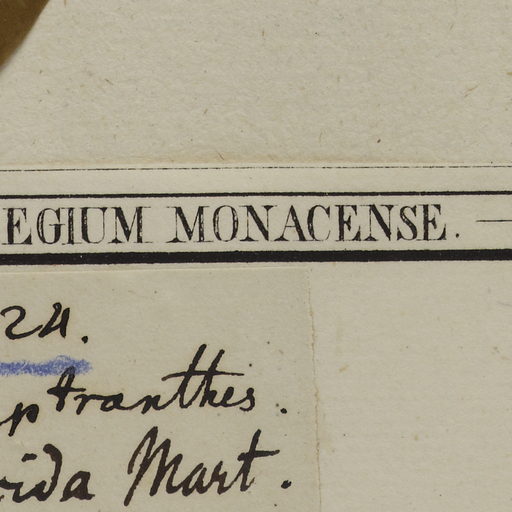 EGIUM MONACENSE.
24.
ptranthes.
ida Mart.